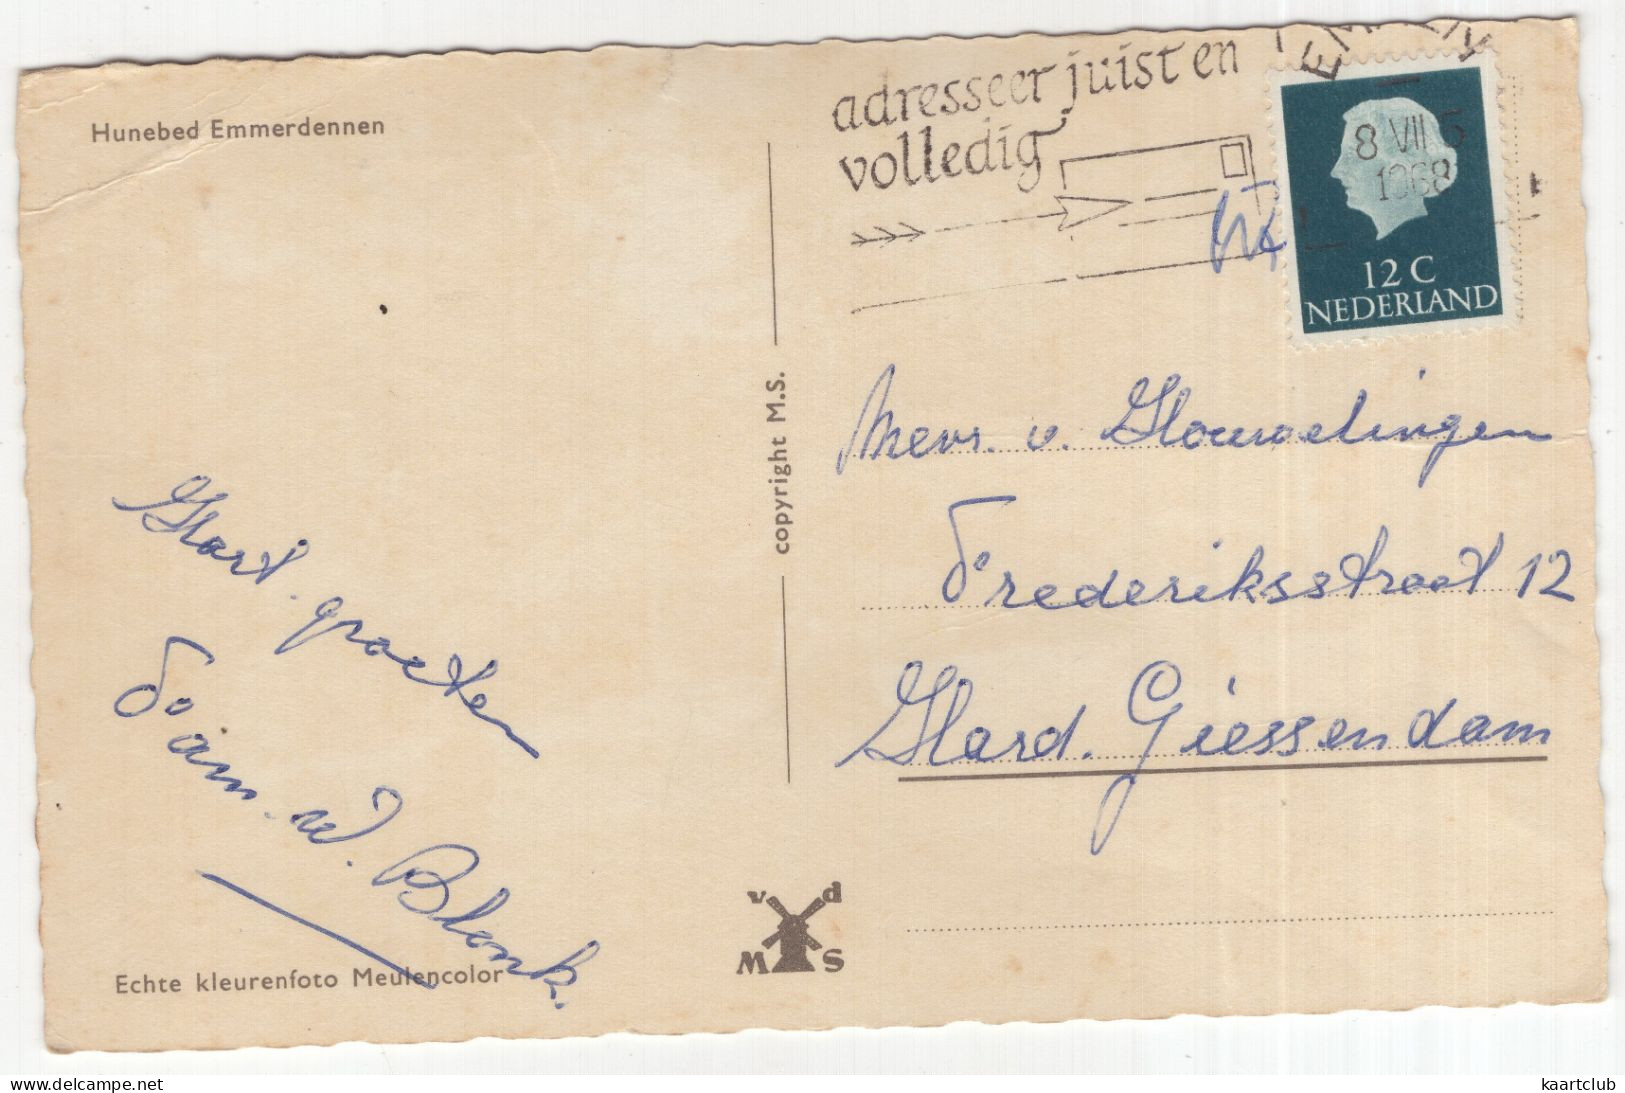 Hunebed Emmerdennen
adresseer juist en
volledig
EMMEN
8 VII 5
1968
12 C
NEDERLAND
Mevr. v. Houwelingen
Frederiksstraat 12
Hard. Giessendam
Hart. groeten
Fam. W. Blonk.
copyright M.S.
v d
M S
Echte kleurenfoto Meulencolor
kaartclub